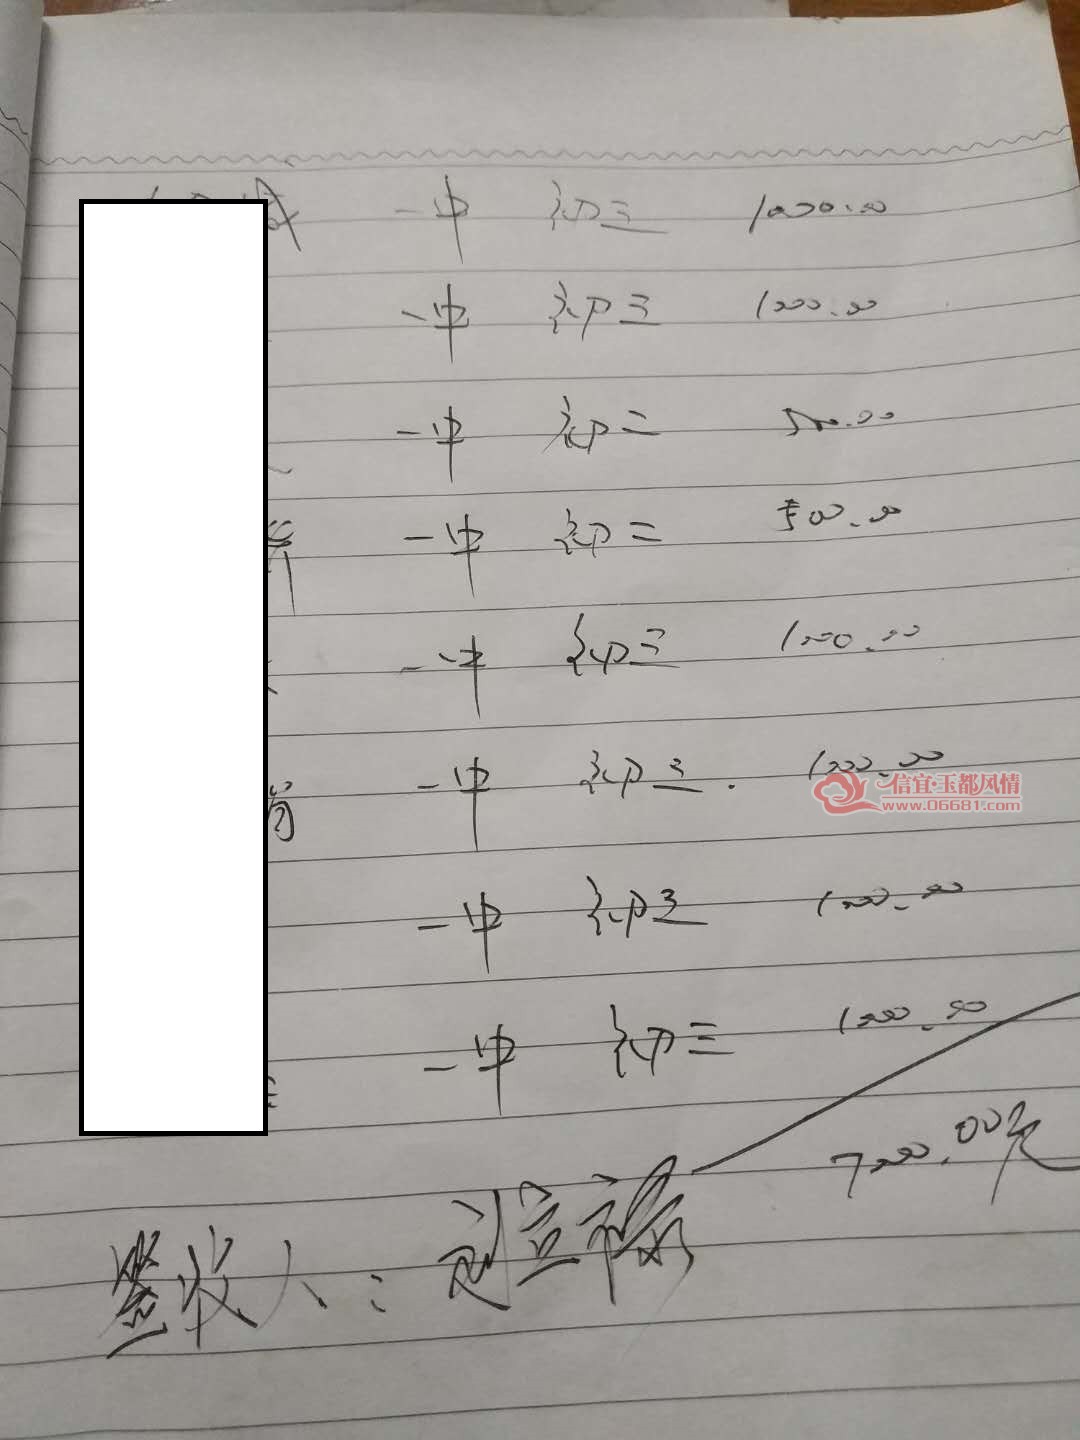 一中 初三 1000.00
一中 初三 1000.00
一中 初二 500.00
一中 初二 500.00
一中 初三 1000.00
一中 初三. 1000.00
信宜·玉都风情
www.06681.com
一中 初三 1000.00
一中 初三 1000.00
7000.00元
签收人: